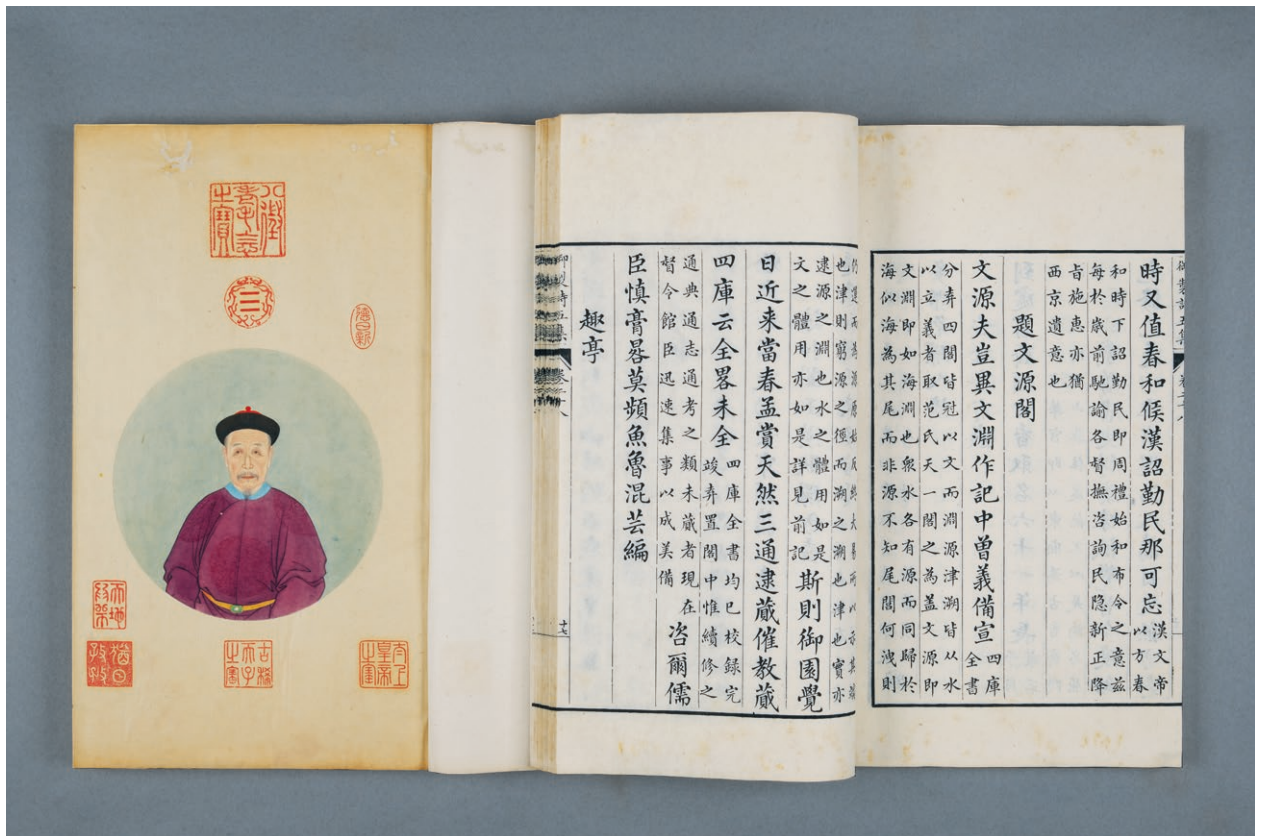 時又值春和候漢詔勤民那可忘漢文帝以方春
和時下詔勤民即周禮始和布令之意茲
每於歲前馳諭各督撫咨詢民隱新正降
旨施惠亦猶
西京遺意也
題文源閣
文源夫豈異文淵作記中曾義備宣四庫全書
分弆四閣皆冠以文而淵源津溯皆从水
以立義者取范氏天一閣之為蓋文源即
文淵即如海淵也衆水各有源而同歸於
海似海為其尾而非源不知尾閭何洩則
也津則窮源之徑而溯之溯也津也實亦
逮源之淵也水之體用如是
文之體用亦如是詳見前記斯則御園覺
日近来當春孟賞天然三通逮蕆催教蕆
四庫云全畧未全四庫全書均已校録完
竣弆置閣中惟續修之
通典通志通考之類未蕆者現在
督令館臣迅速集事以成美備咨爾儒
臣慎膏晷莫頻魚魯混芸編
趣亭
御製詩五集 卷二十八
十七
八徵耄念之寶
三
德日新
太上皇帝之寶
古稀天子之寶
猶日孜孜